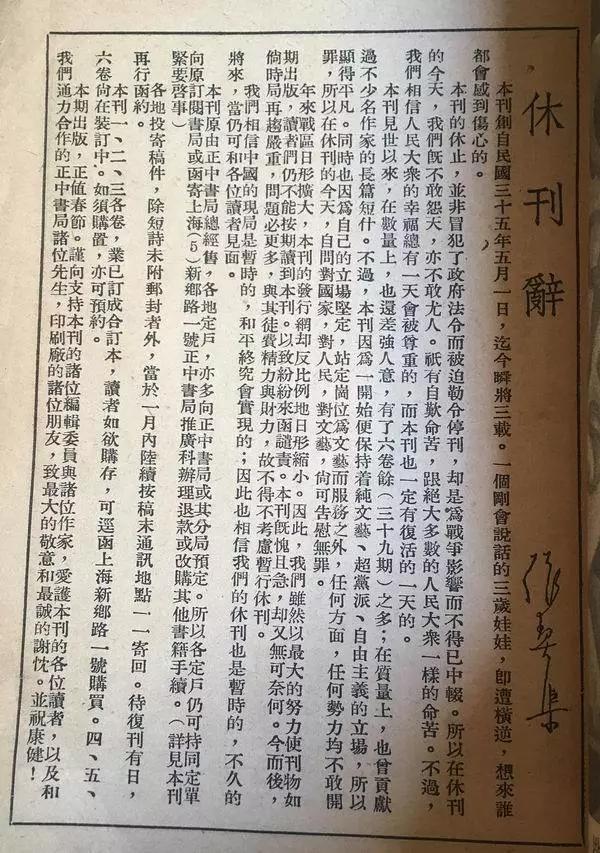 休刊辭
張契渠
本刊創自民國三十五年五月一日，迄今瞬將三載。一個剛會說話的三歲娃娃，卽遭橫逆，想來誰
都會感到傷心的。
本刊的休止，並非冒犯了政府法令而被迫勒令停刊，却是爲戰爭影響而不得已中輟。所以在休刊
的今天，我們旣不敢怨天，亦不敢尤人。祇有自歎命苦，跟絕大多數的人民大衆一樣的命苦。不過，
我們相信人民大衆的幸福總有一天會被尊重的，而本刊也一定有復活的一天的。
本刊見世以來，在數量上，也還差強人意，有了六卷餘（三十九期）之多；在質量上，也曾貢獻
過不少名作家的長篇短什。不過，本刊因爲一開始便保持着純文藝、超黨派、自由主義的立場，所以
顯得平凡。同時也因爲自己的立場堅定，站定崗位爲文藝而服務之外，任何方面，任何勢力均不敢開
罪，所以在休刊的今天，自問對國家，對人民，對文藝，尙可告慰無罪。
年來戰區日形擴大，本刊的發行網却反比例地日形縮小。因此，我們雖然以最大的努力使刊物如
期出版，讀者們仍不能按期讀到本刊。以致紛紛來函譴責。本刊旣愧且急，却又無可奈何。今而後，
倘時局再趨嚴重，問題必更多，與其徒費精力與財力，故不得不考慮暫行休刊。
我們相信中國的現局是暫時的，和平終究會實現的；因此也相信我們的休刊也是暫時的，不久的
將來，當仍可和各位讀者見面。
本刊原由正中書局總經售，各地定戶，亦多向正中書局或其分局預定。所以各定戶仍可持同定單
向原訂閱書局或函寄上海（5）新鄉路一號正中書局推廣科辦理退款或改購其他書籍手續。（詳見本刊
緊要啓事）
各地投寄稿件，除短詩未附郵封者外，當於一月內陸續按稿末通訊地點一一寄回。待復刊有日，
再行函約。
本刊一、二、三各卷，業已訂成合訂本，讀者如欲購存，可逕函上海新鄉路一號購買。四、五、
六卷尙在裝訂中。如須購置，亦可預約。
本期出版，正値春節。謹向支持本刊的諸位編輯委員與諸位作家，愛護本刊的各位讀者，以及和
我們通力合作的正中書局諸位先生，印刷廠的諸位朋友，致最大的敬意和最誠的謝忱。並祝康健！